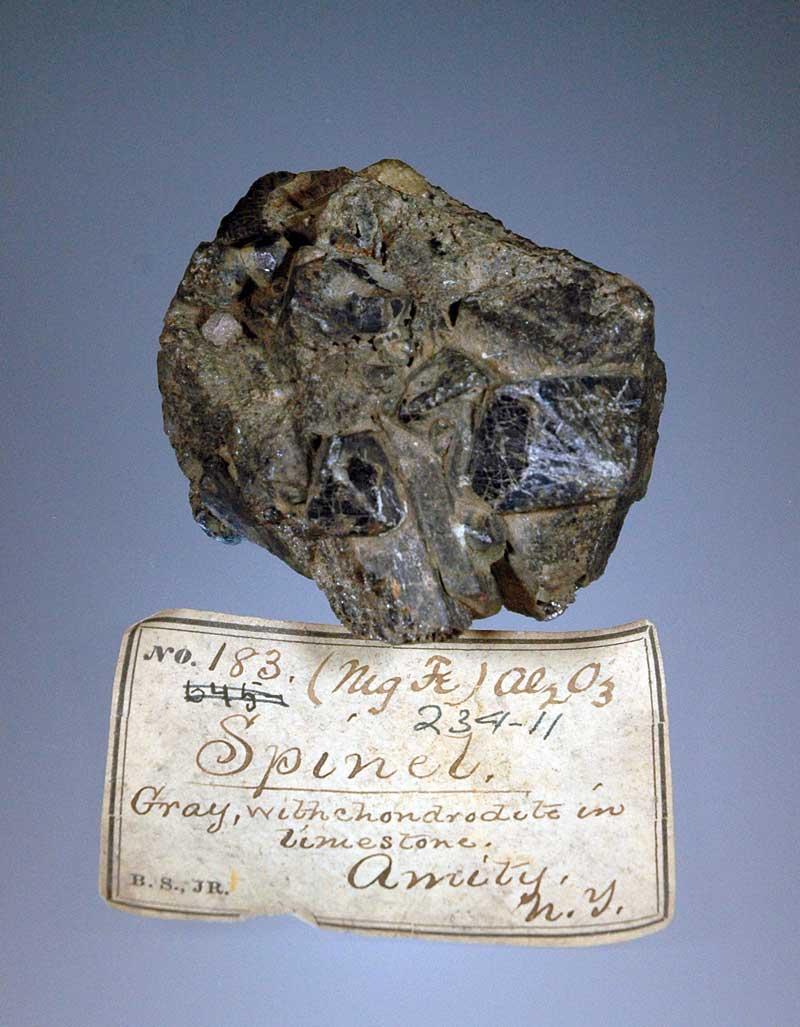 No. 183. (Mg Fe) Al2O3
645
234-11
Spinel.
Gray, with chondrodite in
limestone.
Amity,
N.Y.
B. S., JR.